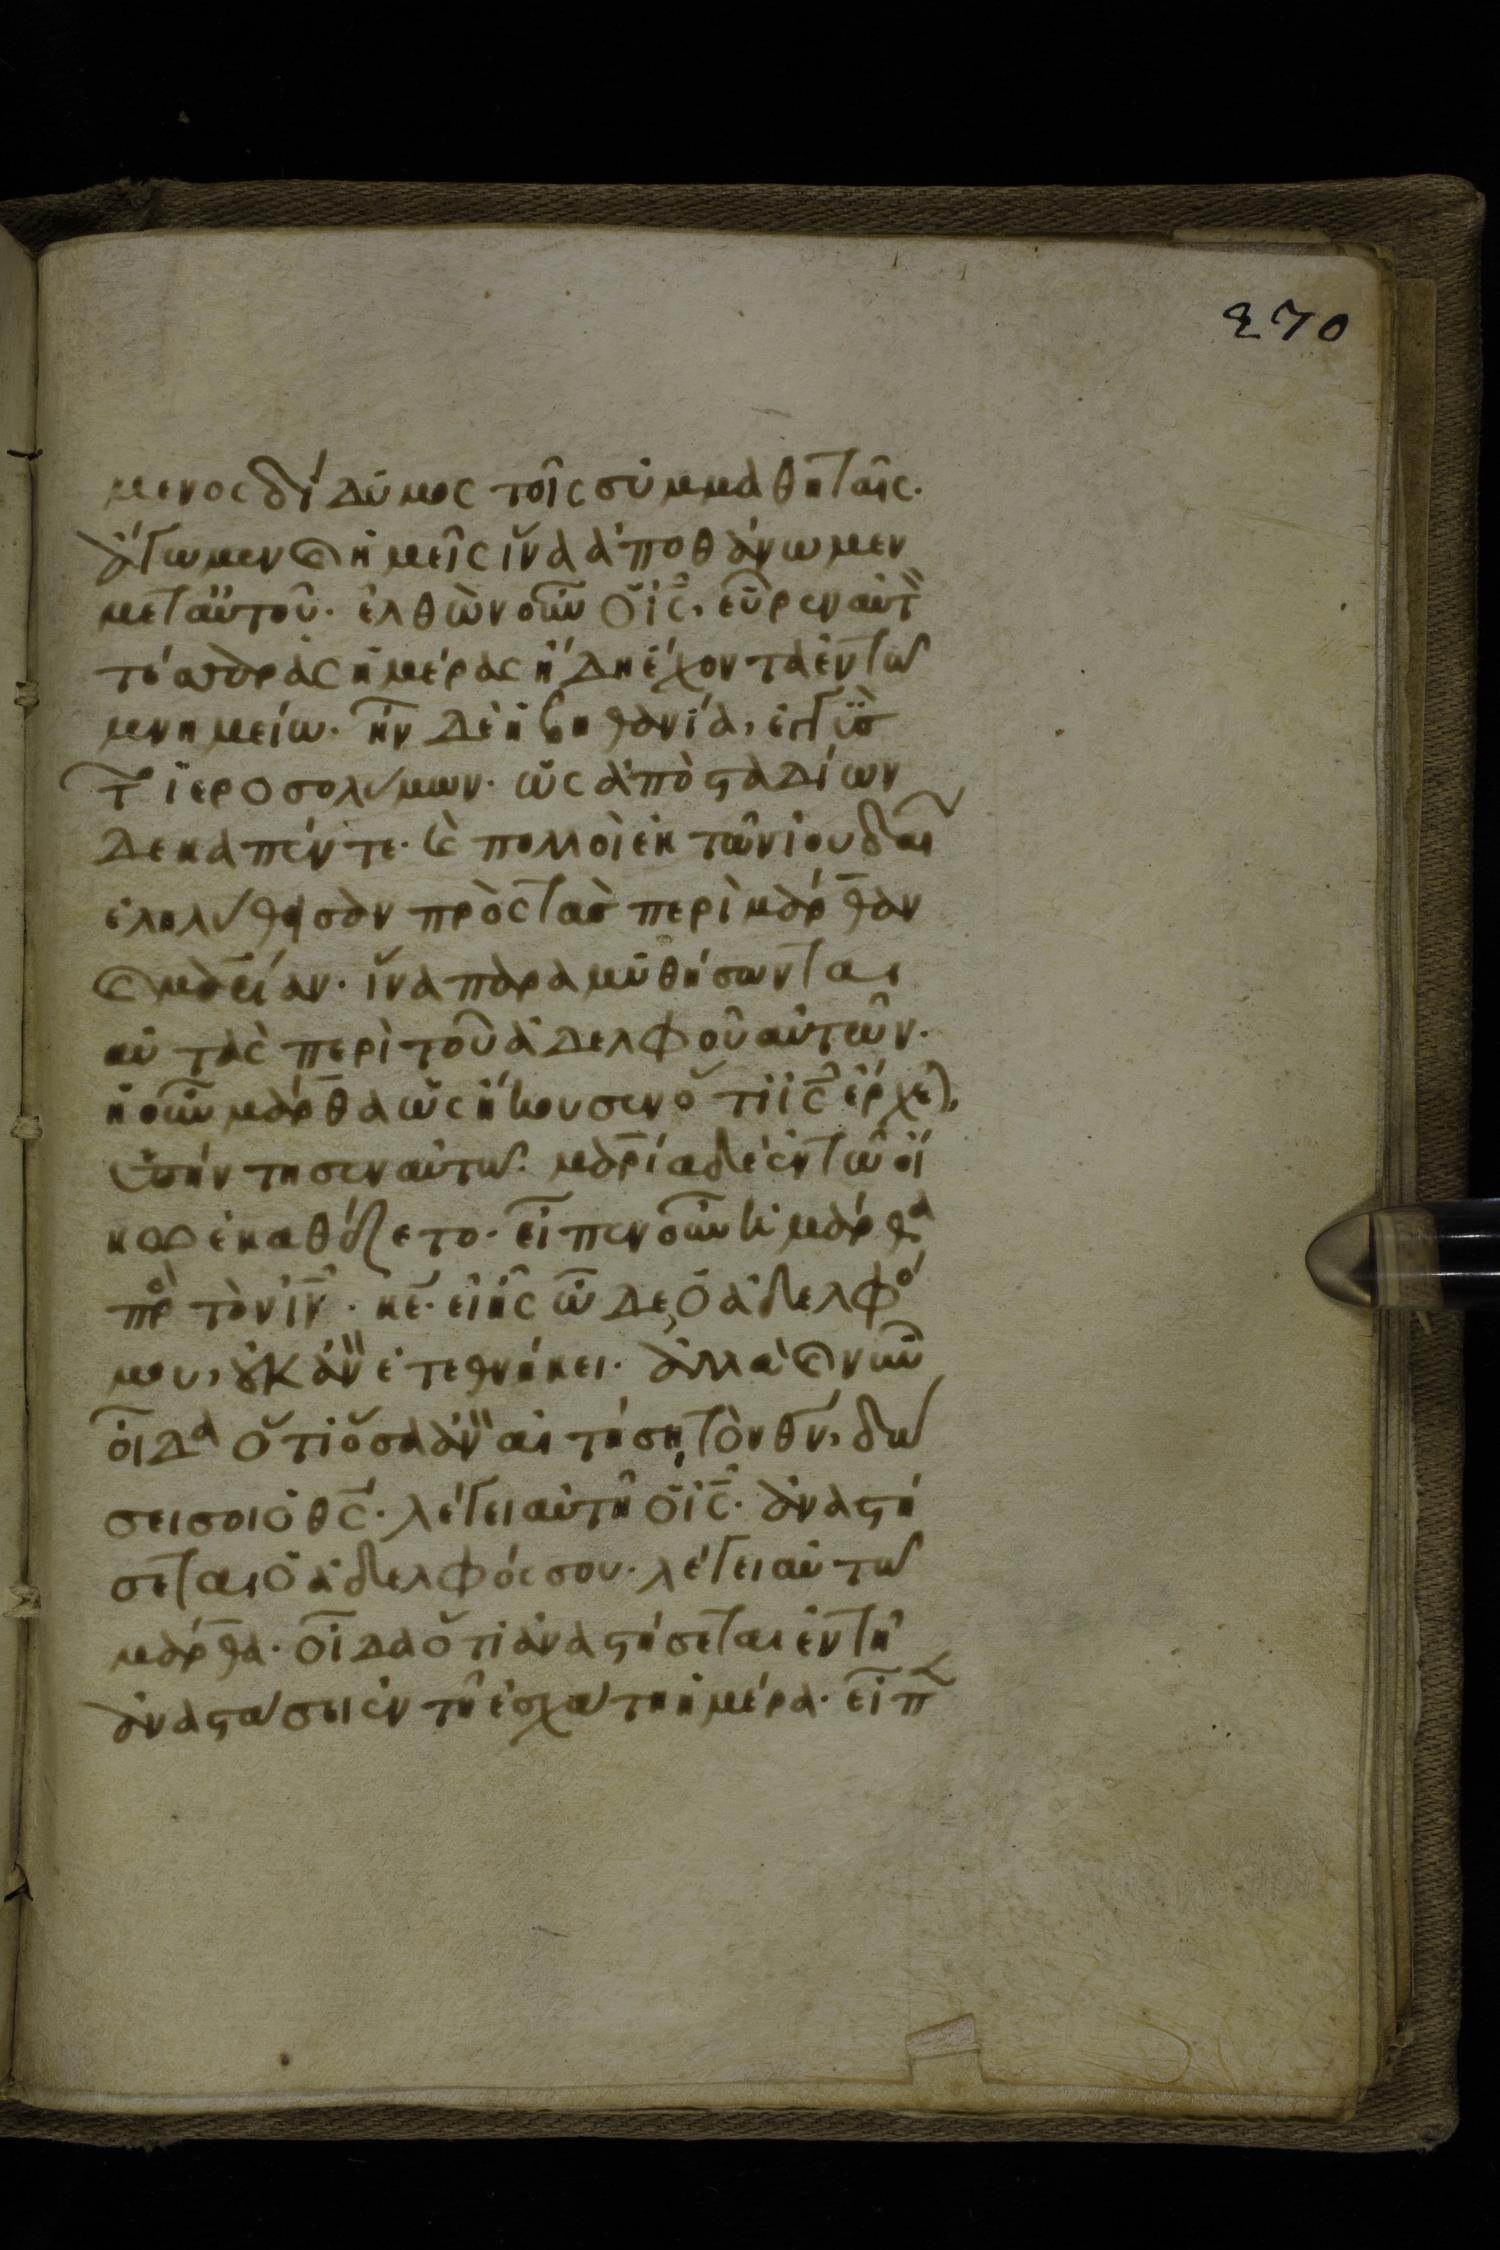 270
μενος δίδυμος τοῖς συμμαθηταῖς·
ἄγωμεν καὶ ἡμεῖς ἵνα ἀποθάνωμεν
μετ αὐτοῦ· ἐλθὼν οὖν ὁ ι̅ς̅, εὗρεν αὐτ
τέσσαρας ἡμέρας ἤδη ἔχοντα ἐν τῶ
μνημείω· ἦν δὲ ἡ βηθανία, ἐγγὺς
τ ἱεροσολύμων· ὡς ἀπὸ σταδίων
δεκαπέντε· καὶ πολλοὶ ἐκ τῶν ἰουδαι
ἐληλύθησαν πρὸς τὰς περὶ μάρθαν
καὶ μαρίαν· ἵνα παραμυθήσωνται
αὐτὰς περὶ τοῦ ἀδελφοῦ αὐτῶν·
ἡ οὖν μάρθα ὡς ἤκουσεν ὅτι ι̅ς̅ ἔρχεται,
ὑπήντησεν αὐτῶ· μαρία δὲ ἐν τῶ οἴ
κω ἐκαθέζετο· εἶπεν οὖν ἡ μάρθα
πρὸ τὸν ι̅ν̅· κ̅ε̅· εἰ ἦς ὧδε, ὁ ἀδελφό
μου, οὐκ ἂν ἐτεθνήκει· ἀλλὰ καὶ νῦν
οἶδα ὅτι ὅσα ἂν αἰτήση τὸν θ̅ν̅, δώ
σει σοι ὁ θ̅ς̅· λέγει αὐτῆ ὁ ι̅ς̅· ἀναστή
σεται ὁ ἀδελφός σου· λέγει αὐτῶ
μάρθα· οἶδα ὅτι ἀναστήσεται ἐν τῆ
ἀναστάσει ἐν τῆ ἐσχάτη ἡμέρα· εἶπ